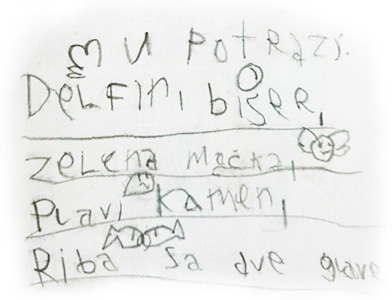 U POTRAZI.
DELFINI, bISER,
ZELENA MAČKA,
PLAVI KAMEN,
RibA SA DVE GLAVE